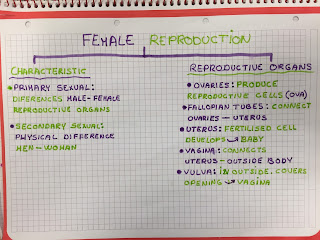 FEMALE REPRODUCTION
CHARACTERISTIC
• PRIMARY SEXUAL:
DIFERENCES MALE-FEMALE
REPRODUCTIVE ORGANS
• SECONDARY SEXUAL:
PHYSICAL DIFFERENCE
MEN-WOMAN
REPRODUCTIVE ORGANS
• OVARIES: PRODUCE
REPRODUCTIVE CELLS (OVA)
• FALLOPIAN TUBES: CONNECT
OVARIES - UTERUS
• UTERUS: FERTILISED CELL
DEVELOPS → BABY
• VAGINA: CONNECTS
UTERUS - OUTSIDE BODY
• VULVA: IN OUTSIDE. COVERS
OPENING → VAGINA